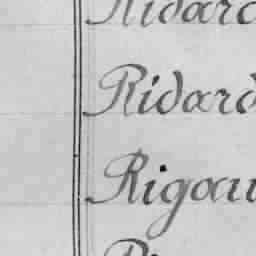 Ridard
Ridard
Rigau